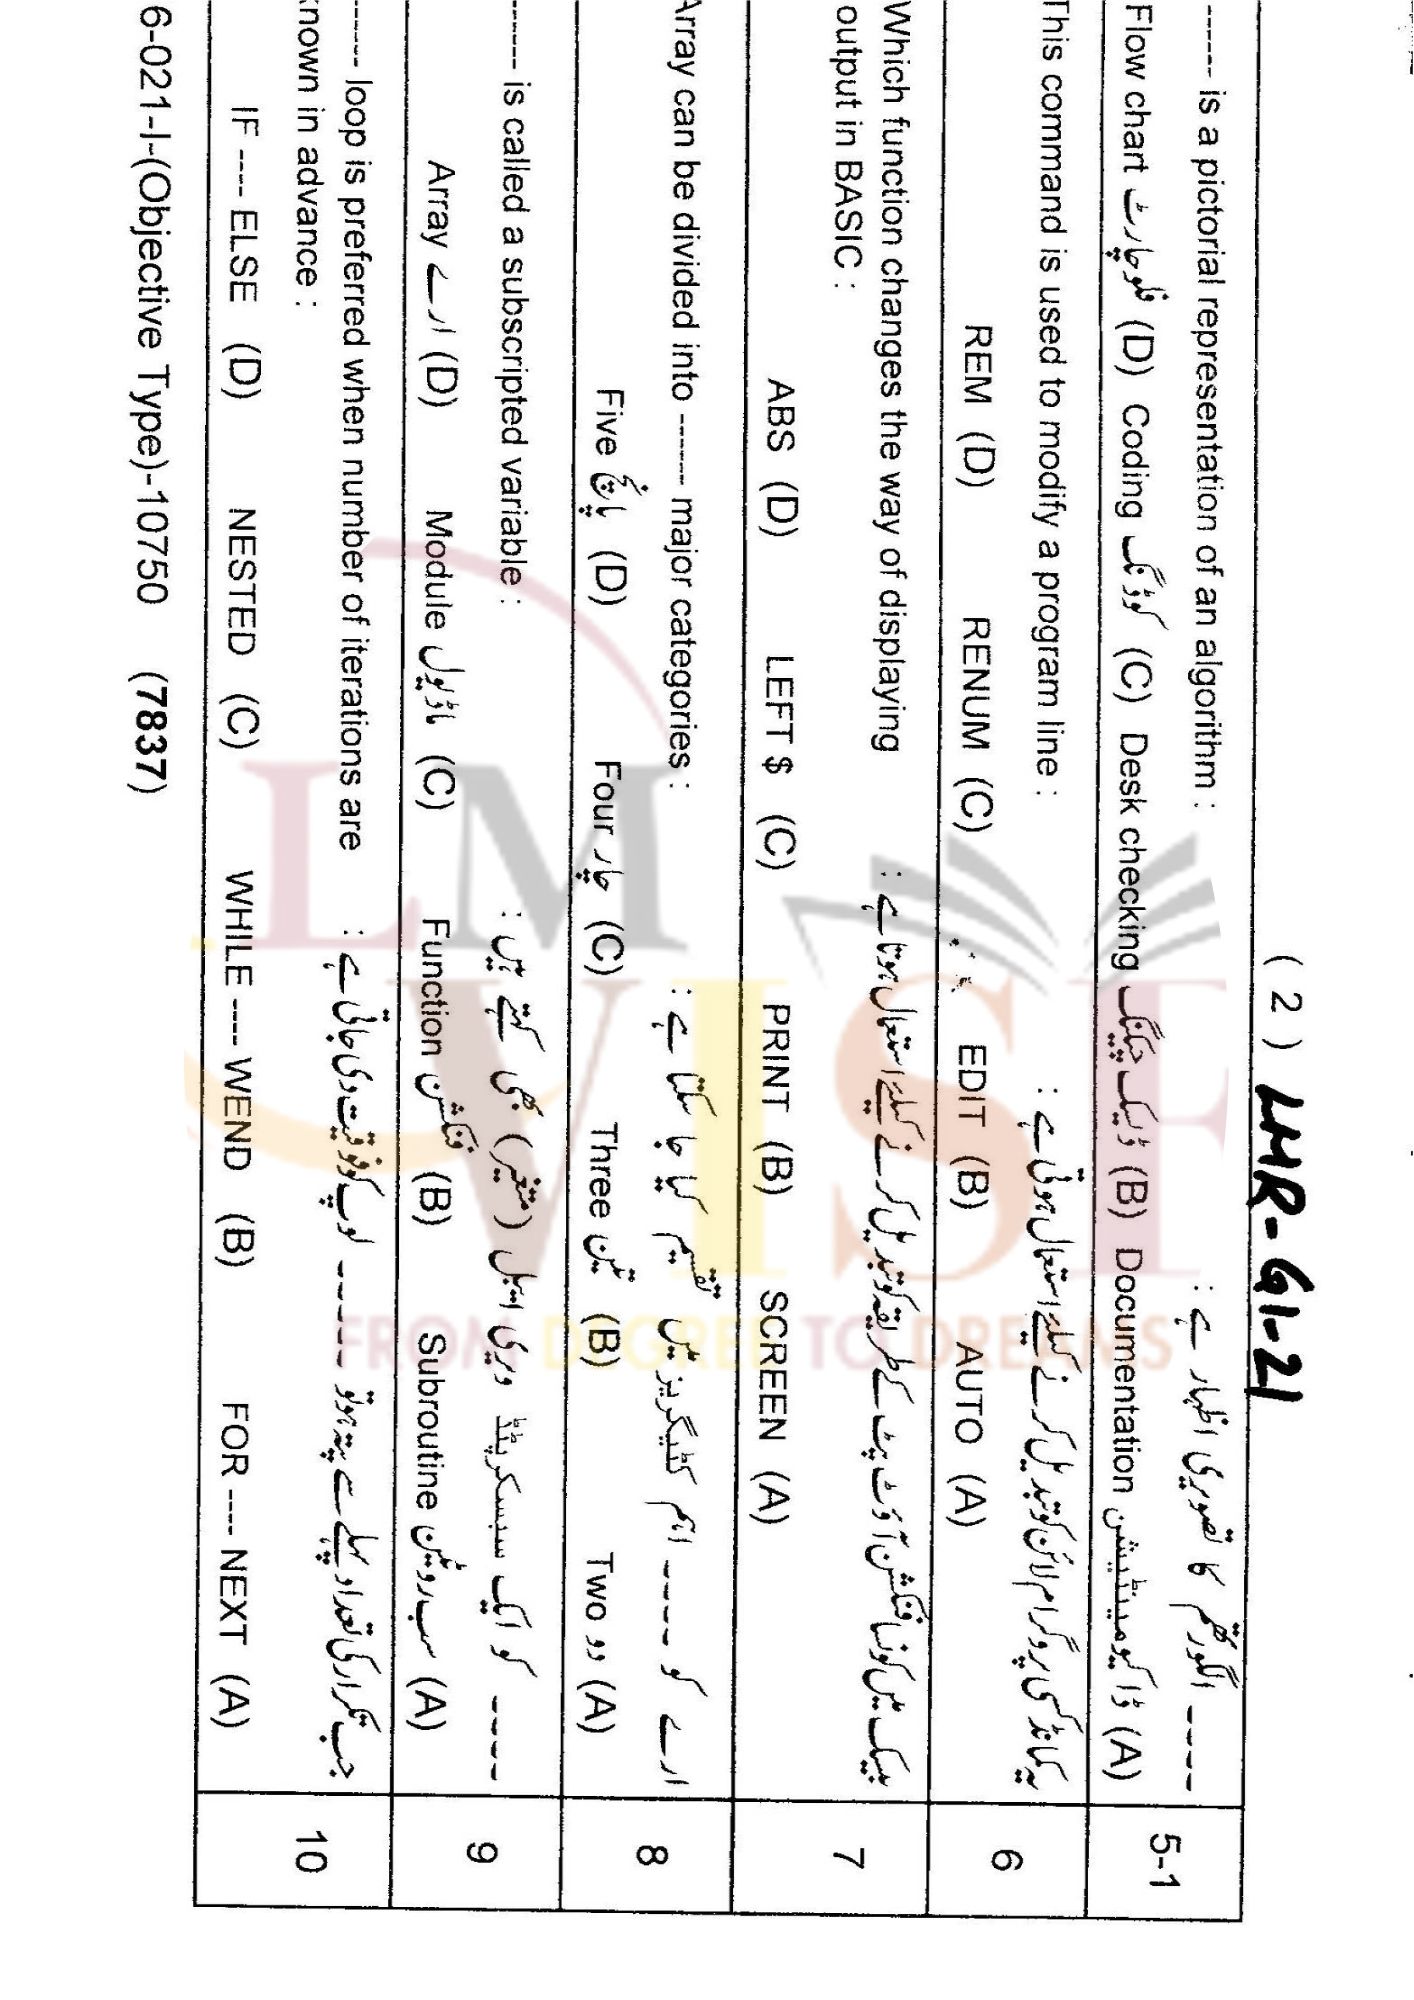 ( 2 ) LHR-G1-21
5-1
------ is a pictorial representation of an algorithm :
---- الگورتھم کا تصویری اظہار ہے :
Flow chart فلو چارٹ (D) Coding کوڈنگ (C) Desk checking ڈیسک چیکنگ (B) Documentation ڈاکیومینٹیشن (A)
6
This command is used to modify a program line :
یہ کمانڈ کسی پروگرام لائن کو تبدیل کرنے کیلئے استعمال ہوتی ہے :
REM (D) RENUM (C) EDIT (B) AUTO (A)
7
Which function changes the way of displaying
output in BASIC :
بیسک میں کونسا فنکشن آؤٹ پٹ کے طریقہ کو تبدیل کرنے کیلئے استعمال ہوتا ہے :
ABS (D) LEFT $ (C) PRINT (B) SCREEN (A)
8
Array can be divided into ------ major categories :
ارے کو ---- اہم کٹیگریز میں تقسیم کیا جا سکتا ہے :
Five پانچ (D) Four چار (C) Three تین (B) Two دو (A)
9
------ is called a subscripted variable :
---- کو ایک سبسکرپٹڈ ویری ایبل (متغیر) بھی کہتے ہیں :
Array ارے (D) Module ماڈیول (C) Function فنکشن (B) Subroutine سب روٹین (A)
10
------ loop is preferred when number of iterations are
known in advance :
جب تکرار کی تعداد پہلے سے پتہ ہو تو ----- لوپ کو فوقیت دی جاتی ہے :
IF ---- ELSE (D) NESTED (C) WHILE ---- WEND (B) FOR ---- NEXT (A)
6-021-I-(Objective Type)-10750 (7837)
FROM DEGREE TO DREAMS